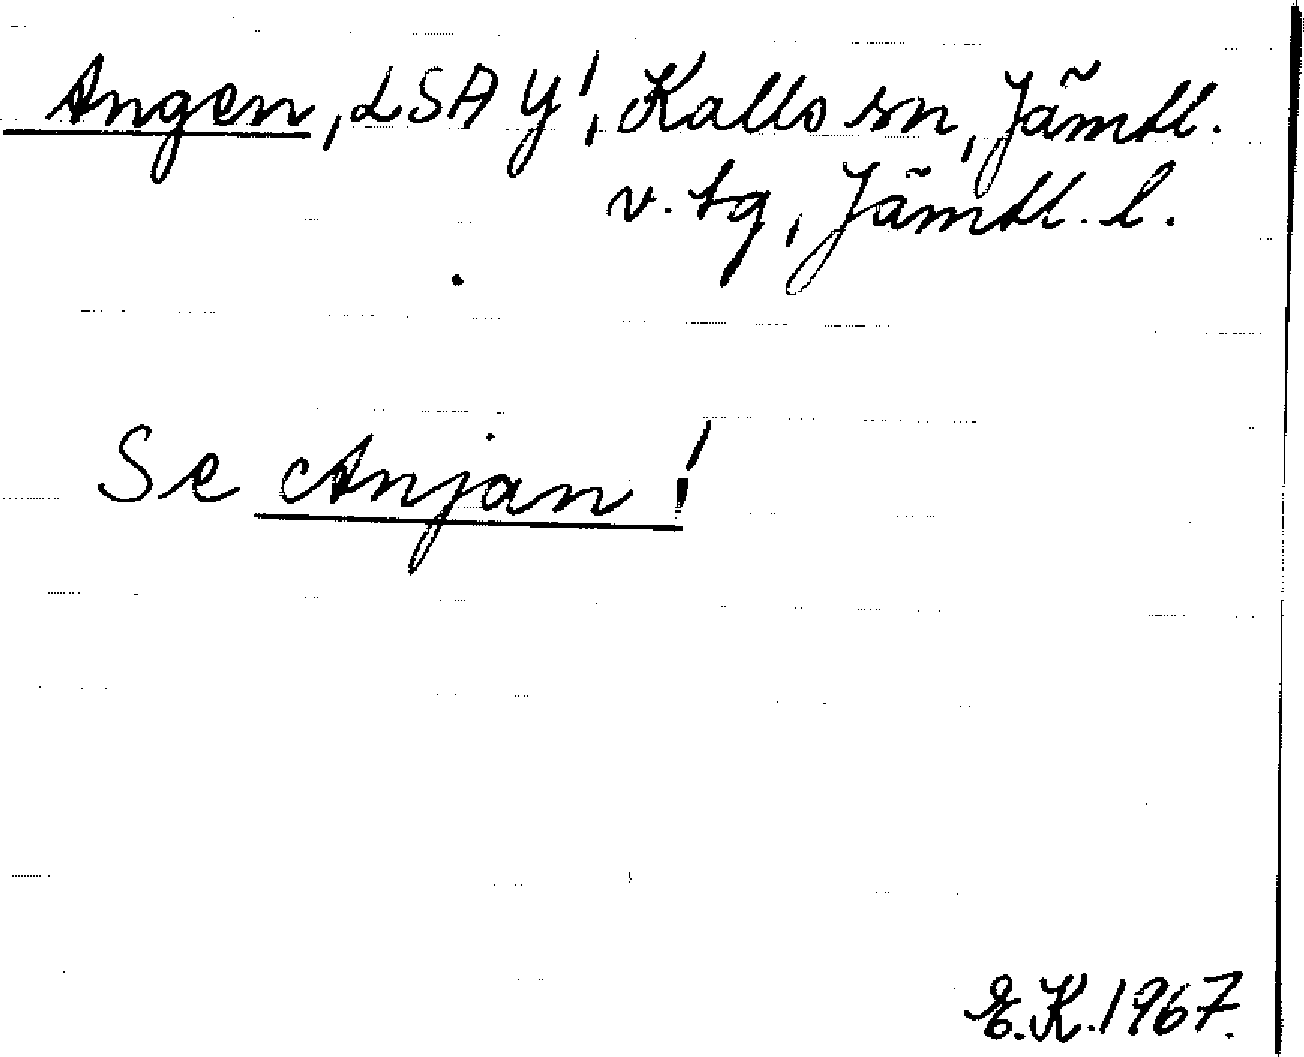 Angen, LSA Y', Kalls sn, Jämtl.
v. tg, Jämtl. l.
Se Anjan!
E.K. 1967.